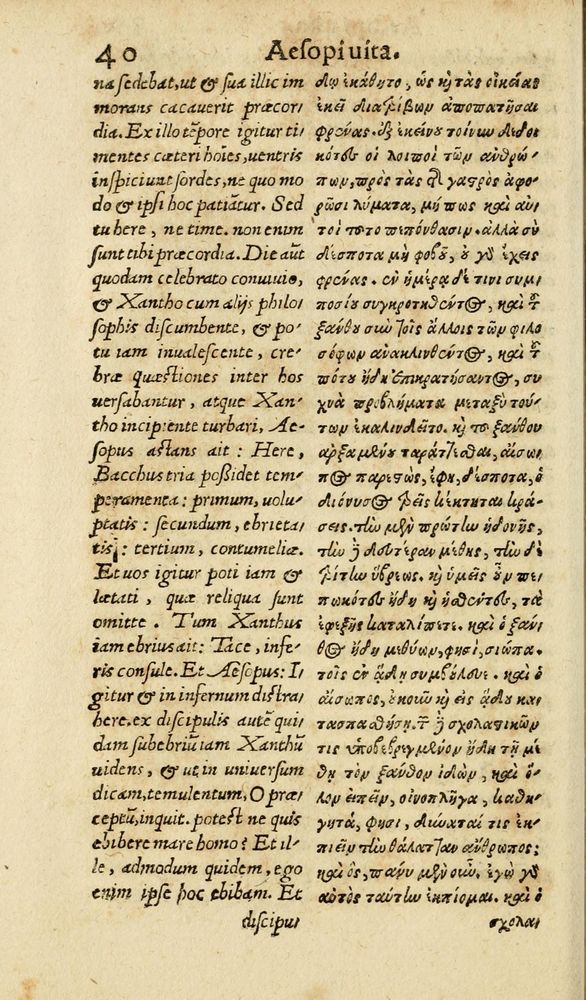 40 Aesopi uita.
na sedebat, ut & sua illic im
morans cacauerit præcor/
dia. Ex illo tẽpore igitur ti/
mentes cæteri hoĩes, uentris
inspiciunt sordes, ne quo mo
do & ipsi hoc patiãtur. Sed
tu here, ne time. non enim
sunt tibi præcordia. Die aũt
quodam celebrato conuiuio,
& Xantho cum alijs philo/
sophis discumbente, & po/
tu iam inualescente, cre/
bræ quæstiones inter hos
uersabantur, atque Xan/
tho incipiente turbari, Ae/
sopus astans ait: Here,
Bacchus tria poßidet tem/
peramenta: primum, uolu/
ptatis: secundum, ebrieta/
tis: tertium, contumeliæ.
Et uos igitur poti iam &
lætati, quæ reliqua sunt
omitte. Tum Xanthus
iam ebrius ait: Tace, infe/
ris consule. Et Aesopus: I/
gitur & in infernum distra/
here. ex discipulis autẽ qui/
dam subebriũ iam Xanthũ
uidens, & ut in uniuersum
dicam, temulentum, O præ/
ceptũ, inquit. potest ne quis
ebibere mare homo? Et il/
le, admodum quidem, ego
enim ipse hoc ebibam. Et
discipu/
λῳ ἐκάθητο, ὡς κὴ τὰς οἰκείας
ἐκεῖ διατρίβωμ ἀποπατῆσαι
φρένας. ἐξ ἐκείνου τοίνυμ δεδοι
κότες οἱ λοιποὶ τῶμ ἀνθρώ/
πωμ, πρὸς τὰς τῆ γαστρὸς ἀφο/
ρῶσι λύματα, μή πως καὶ αὐ/
τοὶ τοῦτο πεπόνθασιμ. ἀλλὰ σὺ
δέσποτα μὴ φοβοῦ, ὀ γδ ἔχεις
φρένας. ἐν ἡμέρᾳ δέ τινι συμ/
ποσίου συγκροτηθέντος, καὶ τ̃
ξάνθου σὺν τοῖς ἄλλοις τῶμ φιλο
σόφωμ ἀνακλινθέντος, καὶ τ̃
πότου ἤδη ἐπικρατήσαντος, συ
χνὰ προβλήματα μεταξὺ τού/
των ἐκαλινδεῖτο. κὴ τ̃ ξάνθου
ἀρξαμένου ταράττεσθαι, αἴσω/
πος παρεστὼς, ἔφη, δέσποτα, ὁ
διόνυσος τρεῖς κέκτηται κρά/
σεις. τὴν μὲν πρώτην ἡδονῆς,
τὴν δὲ δευτέραν μέθης, τὴν δὲ
τρίτην ὕβρεως. κὴ ὑμεῖς οὖμ πε/
πωκότες ἤδη κὴ ἡσθέντες, τὰ
ἐφεξῆς καταλίπετε. καὶ ὁ ξάν/
θος ἤδη μεθύωμ, φησὶ, σιώπα.
τοῖς ἐν ᾅδῃ συμβούλευε. καὶ ὁ
αἴσωπος, ἐκοιῶ κὴ εἰς ᾅδου κα/
τασπαθήσῃ. τ̃ δὲ σχολαστικῶμ
τις ὑποβεβρεγμένομ ἤδη τῇ μέ/
θῃ τὸμ ξάνθομ ἰδὼμ, καὶ ὅ/
λομ εἰπεῖμ, οἰνοπλῆγα, καθη/
γητὰ, φησι, δύναταί τις ἐκ/
πιεῖμ τὴν θάλατταν ἄνθρωπος;
καὶ ὃς, πάνυ μὲν οὖν. ἐγὼ γδ
αὐτὸς ταύτην ἐκπίομαι. καὶ ὁ
σχολα/